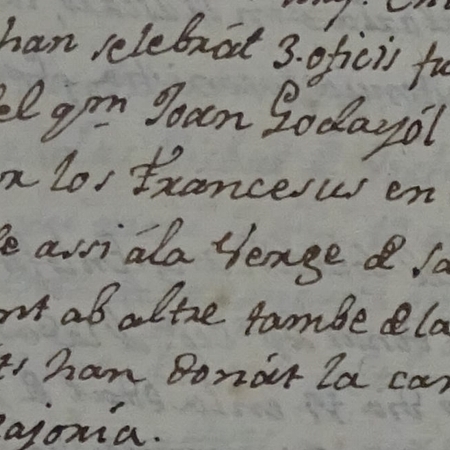 han selebrát 3. oficis fu
el qm Joan Godayól
los Francesus en
assi ála Verge de sa
nt ab altre tambe de la
ts han donát la car
ajoría.